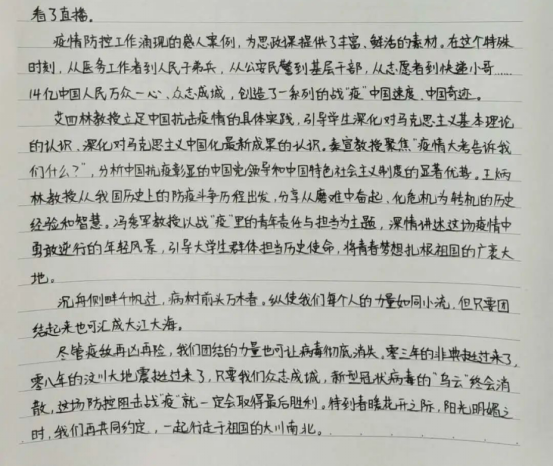 看了直播。
疫情防控工作涌现的感人案例，为思政课提供了丰富、鲜活的素材。在这个特殊
时刻，从医务工作者到人民子弟兵，从公安民警到基层干部，从志愿者到快递小哥……
14亿中国人民万众一心、众志成城，创造了一系列的战“疫”中国速度、中国奇迹。
艾四林教授立足中国抗击疫情的具体实践，引导学生深化对马克思主义基本理论
的认识、深化对马克思主义中国化最新成果的认识。秦宣教授聚焦“疫情大考告诉我
们什么？”，分析中国抗疫彰显的中国党领导和中国特色社会主义制度的显著优势。王炳
林教授从我国历史上的防疫斗争历程出发，分享从磨难中奋起，化危机为转机的历史
经验和智慧。冯秀军教授以战“疫”里的青年责任与担当为主题，深情讲述这场疫情中
勇敢逆行的年轻风景，引导大学生群体担当历史使命，将青春梦想扎根祖国的广袤大
地。
沉舟侧畔千帆过，病树前头万木春。纵使我们每个人的力量如同小流，但只要团
结起来也可汇成大江大海。
尽管疫故再凶再险，我们团结的力量也可让病毒彻底消失，零三年的非典挺过来了，
零八年的汶川大地震挺过来了，只要我们众志成城，新型冠状病毒的“乌云”终会消
散，这场防控阻击战“疫”就一定会取得最后胜利。待到春暖花开之际，阳光明媚之
时，我们再共同约定，一起行走于祖国的大川南北。